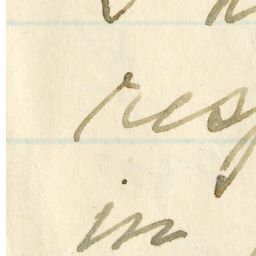 res
in